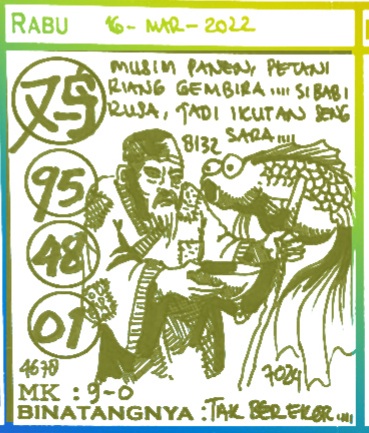 RABU 16-MAR-2022
MUSIM PANEN, PETANI
RIANG GEMBIRA.... SI BABI
RUSA, TADI IKUTAN SENG
SARA....
8132
95
48
01
4678
7024
MK : 9-0
BINATANGNYA : TAK BEREKOR....